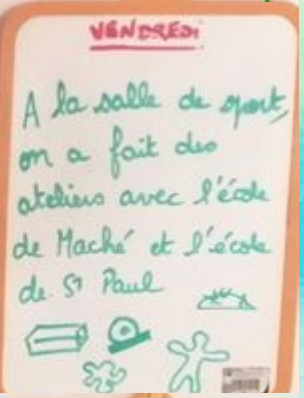 VENDREDI
A la salle de sport,
on a fait des
ateliers avec l'école
de Maché et l'école
de St Paul